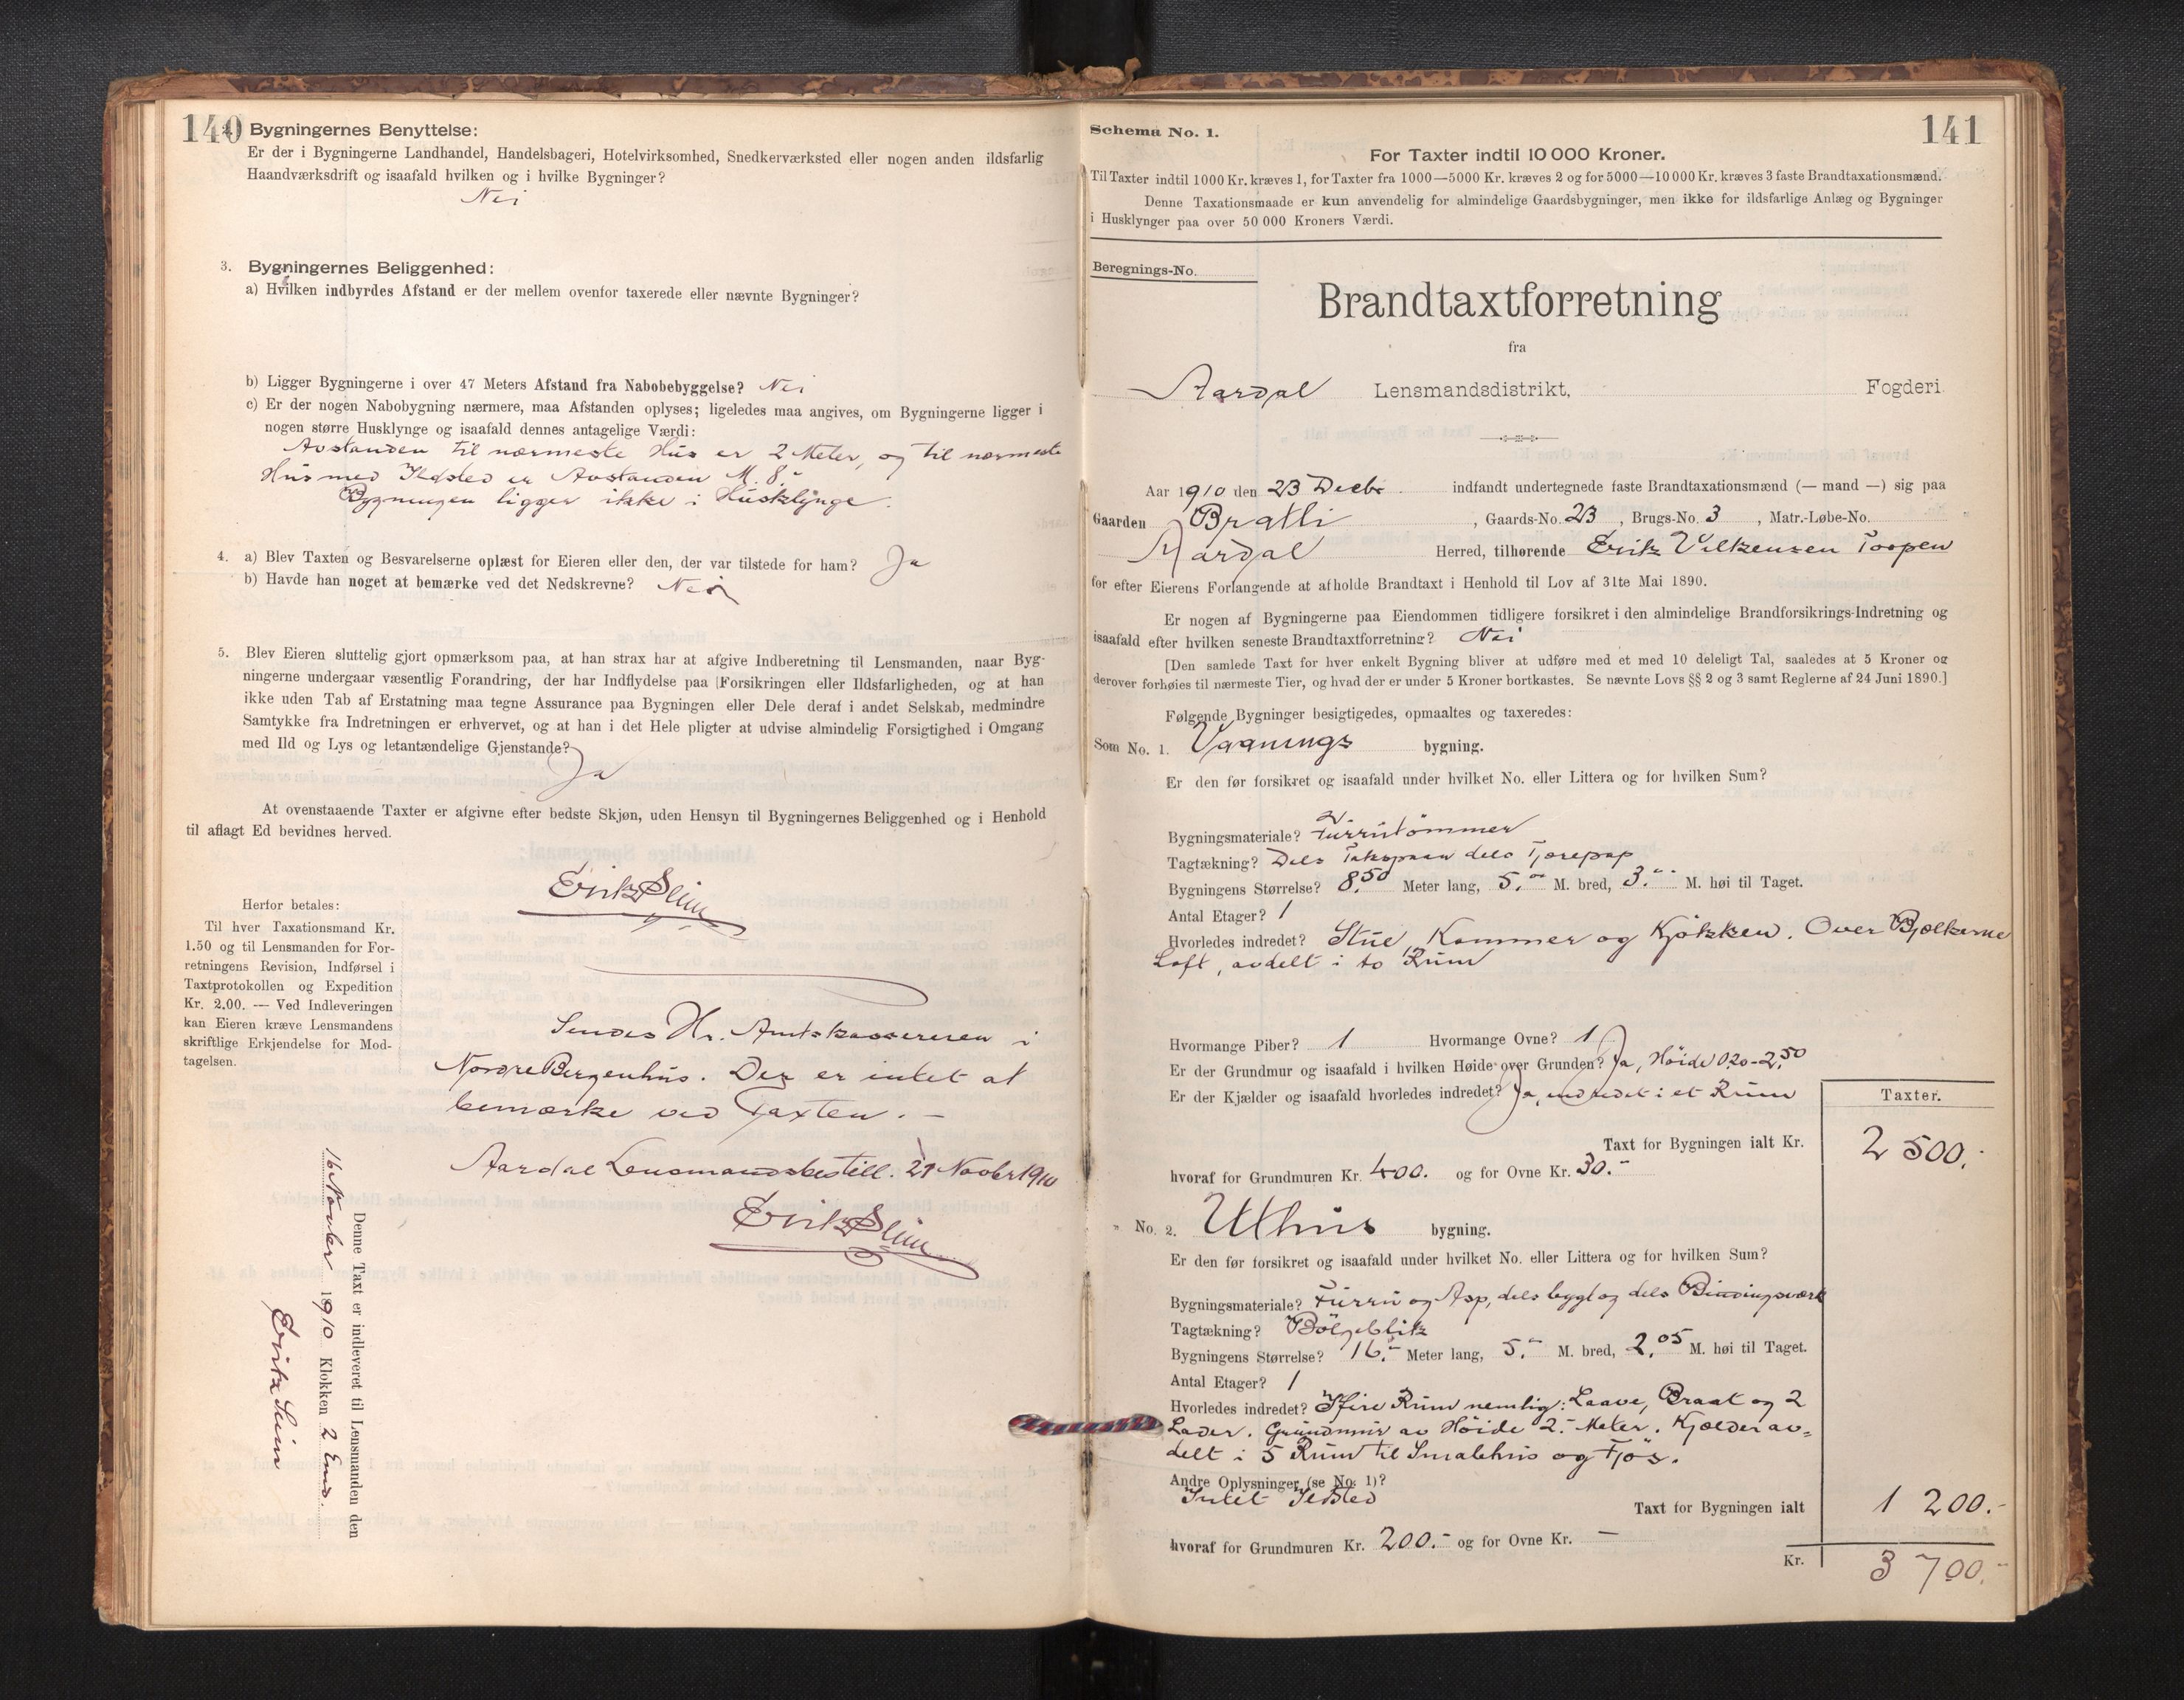 140
Bygningernes Benyttelse:
Er der i Bygningerne Landhandel, Handelsbageri, Hotelvirksomhed, Snedkerværksted eller nogen anden ildsfarlig
Haandværksdrift og isaafald hvilken og i hvilke Bygninger?
Nei
3. Bygningernes Beliggenhed:
a) Hvilken indbyrdes Afstand er der mellem ovenfor taxerede eller nævnte Bygninger?
b) Ligger Bygningerne i over 47 Meters Afstand fra Nabobebyggelse? Nei
c) Er der nogen Nabobygning nærmere, maa Afstanden oplyses; ligeledes maa angives, om Bygningerne ligger i
nogen større Husklynge og isaafald dennes antagelige Værdi:
Avstanden til nærmeste Hus er 2 Meter, og til nærmeste
Hus med Ildsted er Avstanden M. 8.-
Bygningen ligger ikke i Husklynge.
4. a) Blev Taxten og Besvarelserne oplæst for Eieren eller den, der var tilstede for ham? Ja
b) Havde han noget at bemærke ved det Nedskrevne? Nei
5. Blev Eieren sluttelig gjort opmærksom paa, at han strax har at afgive Indberetning til Lensmanden, naar Byg-
ningerne undergaar væsentlig Forandring, der har Indflydelse paa Forsikringen eller Ildsfarligheden, og at han
ikke uden Tab af Erstatning maa tegne Assurance paa Bygningen eller Dele deraf i andet Selskab, medmindre
Samtykke fra Indretningen er erhvervet, og at han i det Hele pligter at udvise almindelig Forsigtighed i Omgang
med Ild og Lys og letantændelige Gjenstande?
Ja
At ovenstaaende Taxter er afgivne efter bedste Skjøn, uden Hensyn til Bygningernes Beliggenhed og i Henhold
til aflagt Ed bevidnes herved.
Erik Slim
Herfor betales:
Til hver Taxationsmand Kr.
1.50 og til Lensmanden for For-
retningens Revision, Indførsel i
Taxtprotokollen og Expedition
Kr. 2.00. — Ved Indleveringen
kan Eieren kræve Lensmandens
skriftlige Erkjendelse for Mod-
tagelsen.
Sendes Hr. Amtskassereren i
Nordre Bergenhus. Der er intet at
bemærke ved Taxten. -
Aardal Lensmandsbestill. 21 Novbr 1910
Erik Slim
Denne Taxt er indleveret til Lensmanden den
16 Novbr 1910 Klokken 2 Emd.
Erik Slim
141
Schema No. 1.
For Taxter indtil 10 000 Kroner.
Til Taxter indtil 1000 Kr. kræves 1, for Taxter fra 1000—5000 Kr. kræves 2 og for 5000—10 000 Kr. kræves 3 faste Brandtaxationsmænd.
Denne Taxationsmaade er kun anvendelig for almindelige Gaardsbygninger, men ikke for ildsfarlige Anlæg og Bygninger
i Husklynger paa over 50 000 Kroners Værdi.
Beregnings-No.
Brandtaxtforretning
fra
Aardal Lensmandsdistrikt, Fogderi
Aar 1910 den 23 Decbr. indfandt undertegnede faste Brandtaxationsmænd (— mand —) sig paa
Gaarden Bratli, Gaards-No. 23, Brugs-No. 3, Matr.-Løbe-No.
Aardal Herred, tilhørende Erik Vilkensen
for efter Eierens Forlangende at afholde Brandtaxt i Henhold til Lov af 31te Mai 1890.
Er nogen af Bygningerne paa Eiendommen tidligere forsikret i den almindelige Brandforsikrings-Indretning og
isaafald efter hvilken seneste Brandtaxtforretning? Nei
[Den samlede Taxt for hver enkelt Bygning bliver at udføre med et med 10 deleligt Tal, saaledes at 5 Kroner og
derover forhøies til nærmeste Tier, og hvad der er under 5 Kroner bortkastes. Se nævnte Lovs §§ 2 og 3 samt Reglerne af 24 Juni 1890.]
Følgende Bygninger besigtigedes, opmaaltes og taxeredes:
Som No. 1. Vaanings bygning.
Er den før forsikret og isaafald under hvilket No. eller Littera og for hvilken Sum?
Bygningsmateriale? Furritømmer
Tagtækning? Dels Takspaan dels Tjærepap
Bygningens Størrelse? 8.50 Meter lang, 5.- M. bred, 3.- M. høi til Taget.
Antal Etager? 1
Hvorledes indredet? Stue, Kammer og Kjøkken. Over Bjælkerne
Loft, avdelt i to Rum
Hvormange Piber? 1 Hvormange Ovne? 1
Er der Grundmur og isaafald i hvilken Høide over Grunden? Ja, Høide 0,20-2,50
Er der Kjælder og isaafald hvorledes indredet? Ja, indredet i et Rum
Taxter.
Taxt for Bygningen ialt Kr. 2 500.-
hvoraf for Grundmuren Kr. 400. og for Ovne Kr. 30.-
" No. 2. Uthus bygning.
Er den før forsikret og isaafald under hvilket No. eller Littera og for hvilken Sum?
Bygningsmateriale? Furru og Asp, dels bygt og dels Bindingsværk
Tagtækning? Bølgeblik
Bygningens Størrelse? 16.- Meter lang, 5.- M. bred, 2.05 M. høi til Taget.
Antal Etager? 1
Hvorledes indredet? Fire Rum nemlig: Laave, Braat og 2
Lader. Grundmur av Høide 2.- Meter. Kjælder av-
delt i 5 Rum til Smalehus og Fjøs.
Andre Oplysninger (se No. 1)?
Intet Ildsted
Taxt for Bygningen ialt 1 200.-
hvoraf for Grundmuren Kr. 200.- og for Ovne Kr. —
Kr. 3 700.-